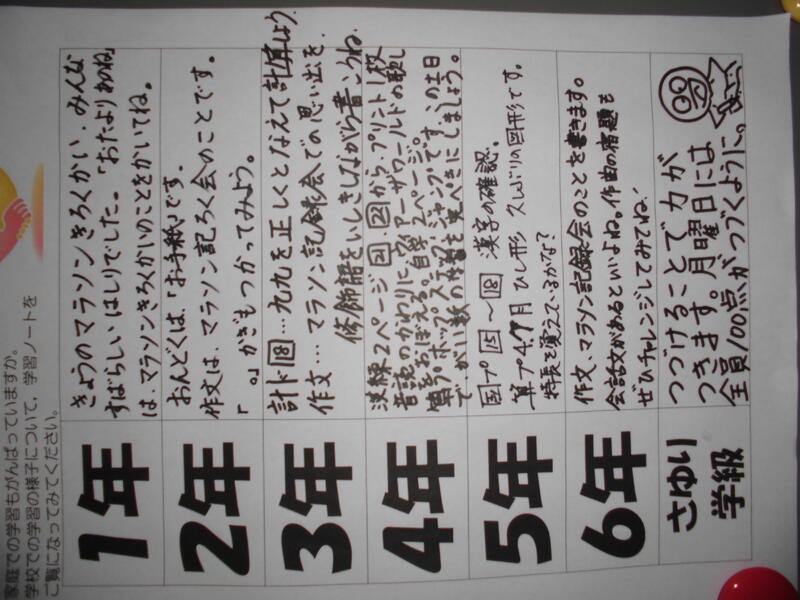 家庭での学習もがんばっていますか。
学校での学習の様子について、学習ノートを
ご覧になってみてください。
1年
きょうのマラソンきろくかい、みんな
すばらしいはしりでした。「おたより あのね」
は、マラソンきろくかいのことをかいてね。
2年
おんどくは、「お手紙」です。
作文は、マラソン記ろく会のことです。
「 。」かぎもつかってみよう。
3年
計ド⑱…九九を正しくとなえて計算しよう。
作文…マラソン記録会での思い出を、
修飾語をいしきしながら書こうね。
4年
漢練2ページ 21、22から、プリント1枚
音読のかわりに、ウィアーザワールドの歌し
を、おぼえる。自学2ページ。
ホップステップジャンプです。この土日
で、がい数の学習を完ぺきにしましょう。
5年
国プ15〜18 漢字の確認。
算プ4、9月 ひし形 久しぶりの図形です。
特長を覚えているかな?
6年
作文、マラソン記録会のことを書きます。
会話文があるといいよね。作曲の宿題も
ぜひチャレンジしてみてね!
さゆり
学級
つづけることで力が
つきます。月曜日には
全員100点がつづくように。